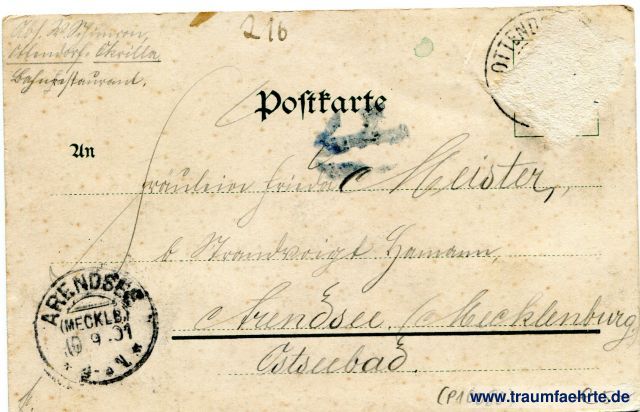 216
Ottendorf-Okrilla
Bahnrestaurant.
OTTEND
Postkarte
An
Fräulein Frieda Meister,
b Strandvoigt Hamann,
Arendsee i/Mecklenburg
Ostseebad.
ARENDSEE
(MECKLB.)
9.01
www.traumfaehrte.de